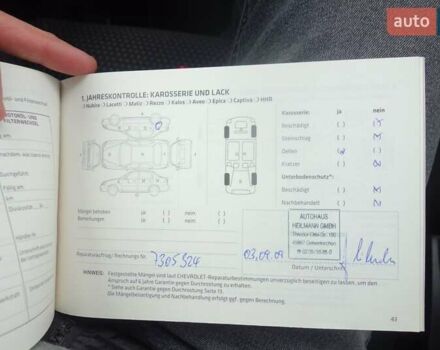 auto
MOTORÖL- UND
FILTERWECHSEL
1. JAHRESKONTROLLE: KAROSSERIE UND LACK
❍ Nubira ❍ Lacetti ❍ Matiz ❍ Rezzo ❍ Kalos ❍ Aveo ❍ Epica ❍ Captiva ❍ HHR
Karosserie: ja nein
Beschädigt ( )
Steinschlag ( )
Dellen ( )
Kratzer ( )
Unterbodenschutz*:
Beschädigt ( )
Nachbehandelt ( )
Mängel behoben ja ( ) nein ( )
Bemerkungen ja ( ) nein ( )
AUTOHAUS
HEILMANN GMBH
45897 Gelsenkirchen
Reparaturauftrag / Rechnungs Nr. 7305324 03.09.09
Datum / Unterschrift
HINWEIS: Festgestellte Mängel sind laut CHEVROLET-Reparaturbestimmungen unverzüglich beseitigen zu lassen, um den
Anspruch auf 6 Jahre Garantie gegen Durchrostung zu erhalten.
* Siehe auch Garantie gegen Durchrostung Seite 13.
Die Mängelbeseitigung und Nachbehandlung erfolgt ggf. gegen Berechnung.
43